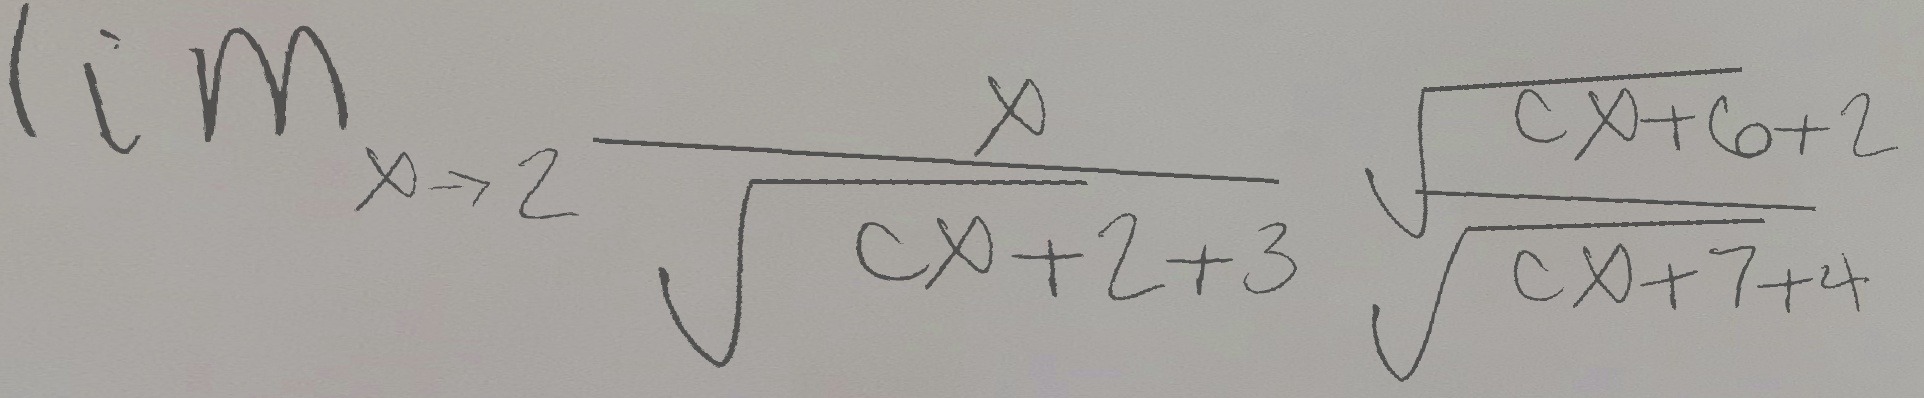 \lim_{x \to 2} \frac{x}{\sqrt{cx+2+3}} \frac{\sqrt{cx+6+2}}{\sqrt{cx+7+4}}